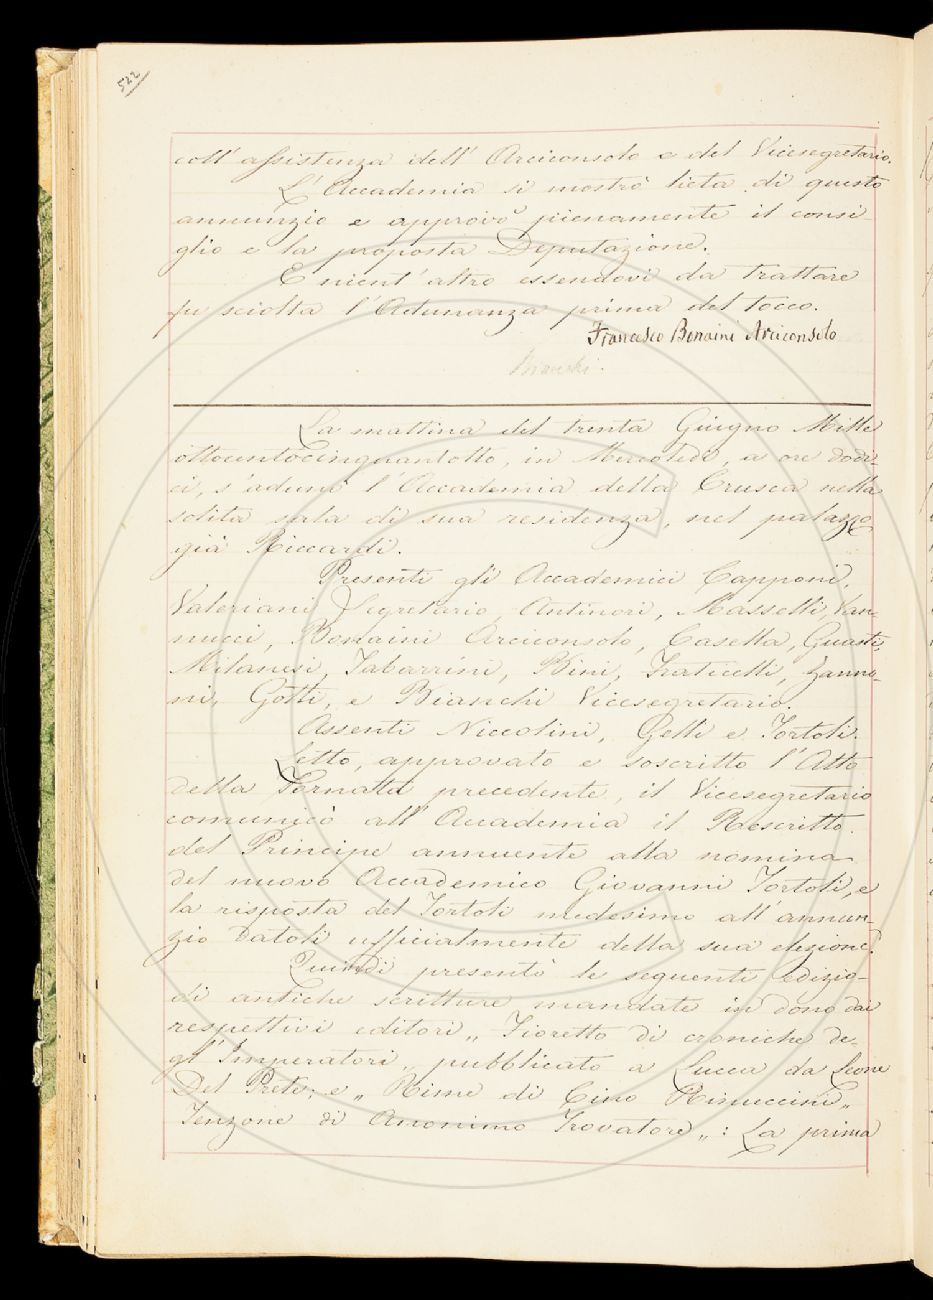 522
coll'assistenza dell'Arciconsolo e del Vicesegretario.
L'Accademia si mostrò lieta di questo
annunzio e approvò pienamente il consi-
glio e la proposta Deputazione.
E nient'altro essendovi da trattare
fu sciolta l'Adunanza prima del tocco.
Francesco Bonaini Arciconsolo
Bianchi.
La mattina del trenta Giugno Mille
ottocentocinquantotto, in Mercoledì, a ore dodi-
ci, s'adunò l'Accademia della Crusca nella
solita sala di sua residenza, nel palazzo
già Riccardi.
Presenti gli Accademici Capponi,
Valeriani Segretario, Antinori, Masselli, Van-
nucci, Bonaini Arciconsolo, Casella, Guasti,
Milanesi, Tabarrini, Bini, Fraticelli, Zanno-
ni, Gotti, e Bianchi Vicesegretario.
Assenti Niccolini, Gelli e Tortoli.
Letto, approvato e soscritto l'Atto
della Tornata precedente, il Vicesegretario
comunicò all'Accademia il Rescritto
del Principe annuente alla nomina
del nuovo Accademico Giovanni Tortoli, e
la risposta del Tortoli medesimo all'annun-
zio datoli ufficialmente della sua elezione.
Quindi presentò le seguenti edizio-
di antiche scritture mandate in dono dai
respettivi editori „ Fioretto di croniche de-
gl'Imperatori „ pubblicato a Lucca da Leone
Del Prete; e „ Rime di Cino Rinuccini „
Tenzone di Anonimo Trovatore „ : La prima